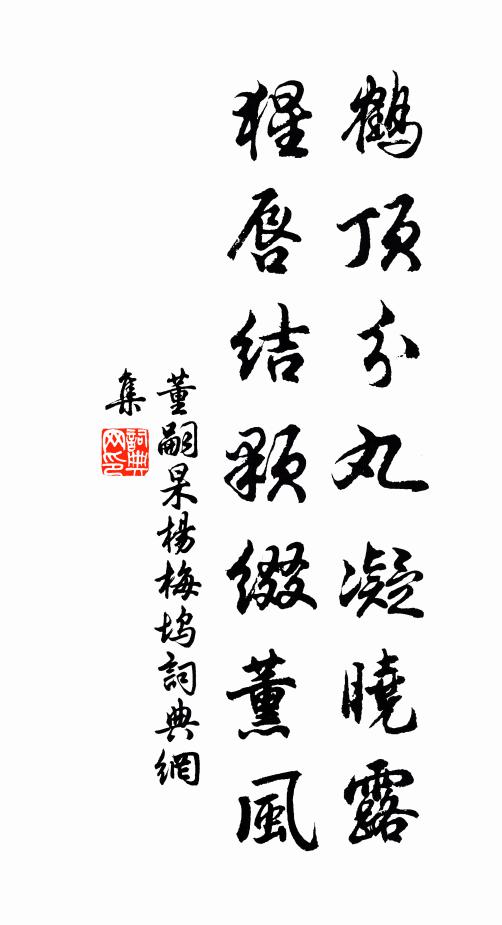 鶴頂分丸凝曉露
猩唇結顆綴薰風
董嗣杲楊梅塢詞典網
集
詞典
网印